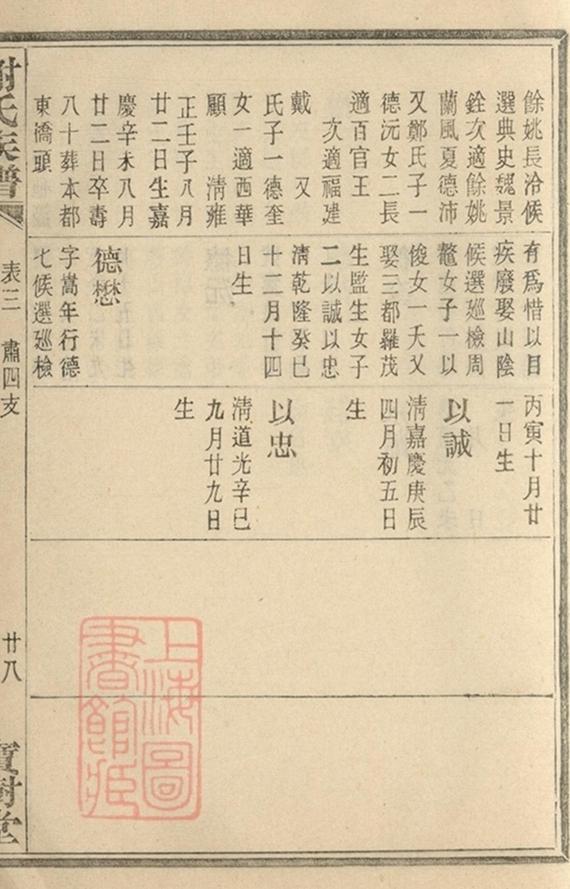 餘姚長泠候
選典史魏景
銓次適餘姚
蘭風夏德沛
又鄭氏子一
德沅女二長
適百官王
次適福建
戴　又
氏子一德奎
女一適西華
顧　清雍
正壬子八月
廿二日生嘉
慶辛未八月
廿二日卒壽
八十葬本都
東橋頭
有爲惜以目
疾廢娶山陰
候選廵檢周
鼇女子一以
俊女一夭又
娶三都羅茂
生監生女子
二以誠以忠
清乾隆癸巳
十二月十四
日生
德懋
字嵩年行德
七候選廵檢
丙寅十月廿
一日生
以誠
清嘉慶庚辰
四月初五日
生
以忠
清道光辛巳
九月廿九日
生
氏族譜
表三　肅四支
廿八
寶樹堂
上海圖
書館藏